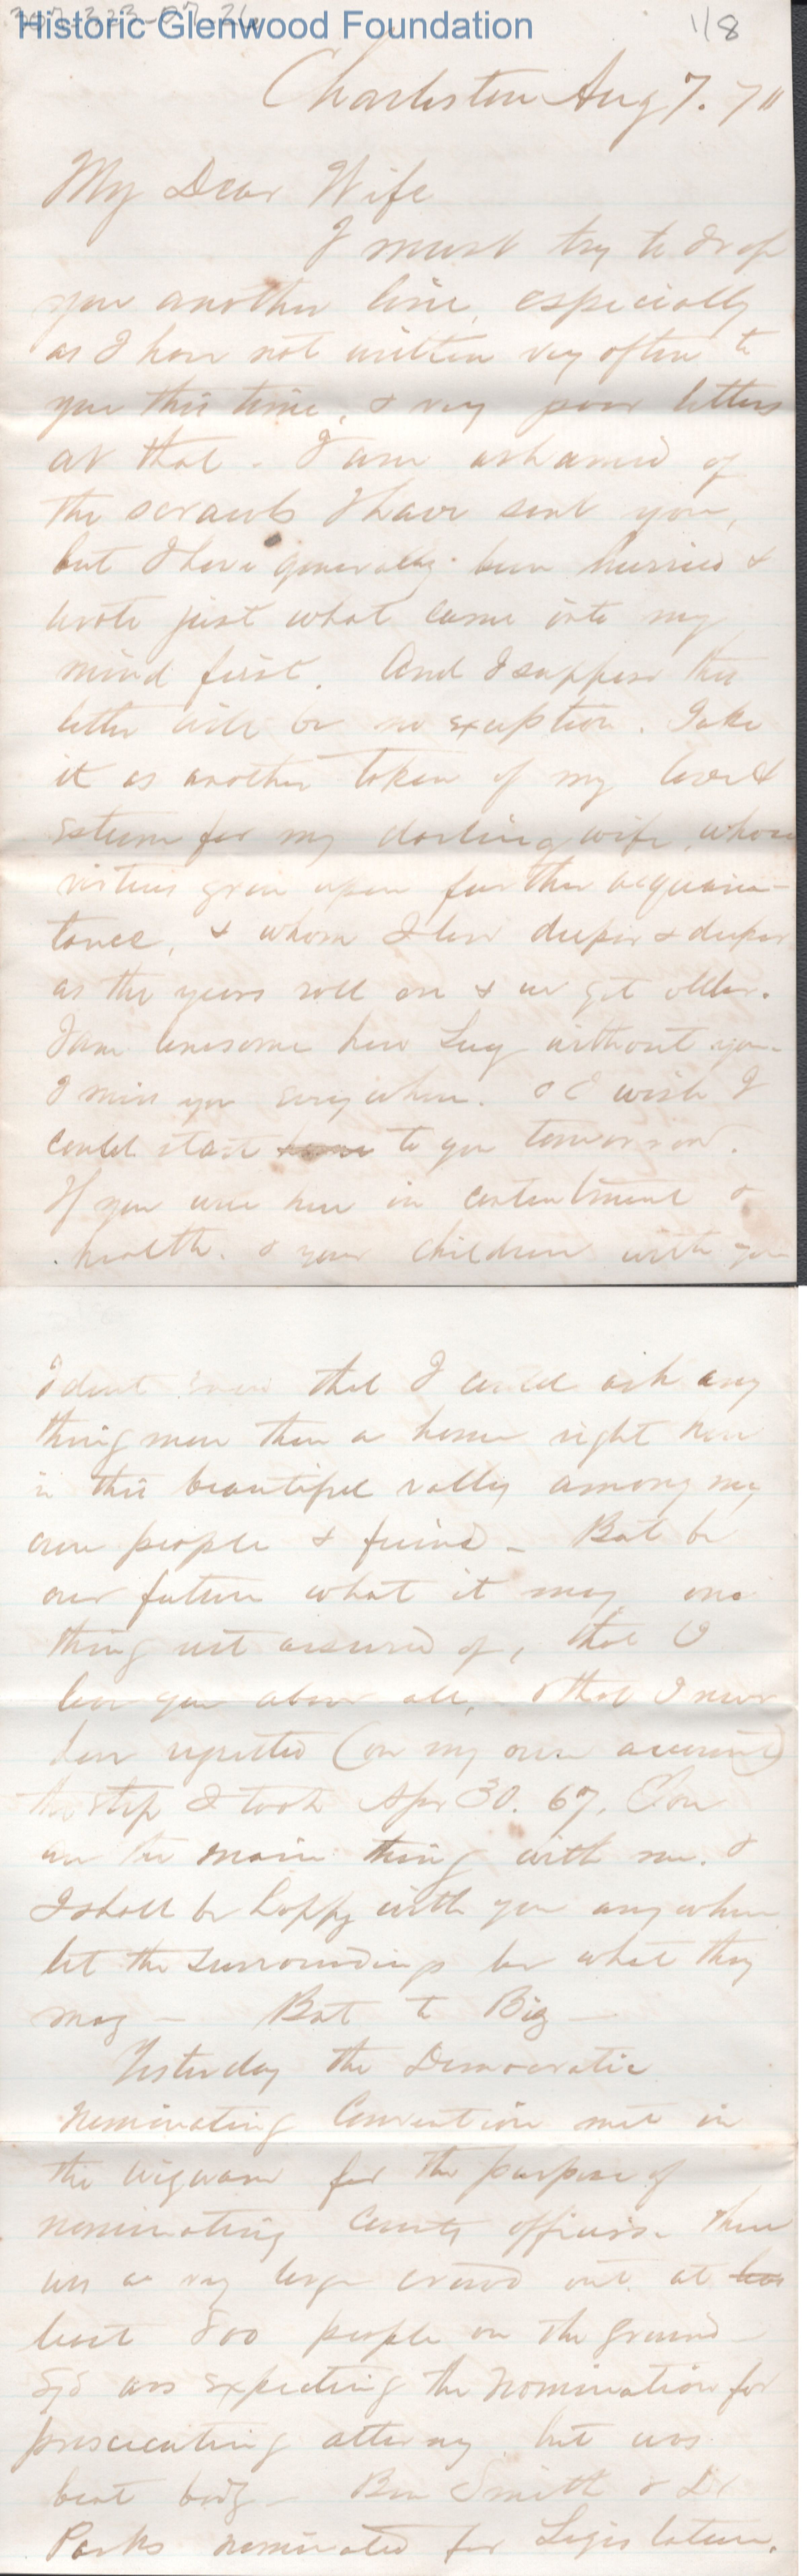 Historic Glenwood Foundation
1/8
Charleston Aug 7. 70
My Dear Wife
I must try to drop
you another line, especially
as I have not written very often to
you this time, & very poor letters
at that. I am ashamed of
the scrawls I have sent you,
but I have generally been hurried &
wrote just what came into my
mind first. And I suppose this
letter will be no exception. Take
it as another token of my love &
esteem for my darling wife, whose
virtues grow upon further acquain-
tance, & whom I love deeper & deeper
as the years roll on & we get older.
I am lonesome here Lucy without you.
I miss you everywhere. & I wish I
could start home to you tomorrow.
If you were here in contentment &
health. & your children with you
I dont know that I could ask any
thing more than a home right here
in this beautiful valley among my
own people & friends - But be
our future what it may one
thing rest assured of, that I
love you above all, & that I never
have regretted (on my own account)
the step I took Apr 30. 67. You
are the main thing with me. &
I shall be happy with you any where
let the surroundings be what they
may - But to Biz -
Yesterday the Democratic
Nominating Convention met in
the wigwam for the purpose of
nominating County officers. There
was a very large crowd out at
least 800 people on the ground -
Syd was expecting the nomination for
prosecuting attorney but was
beat badly - Ben Smith & Dr
Parks nominated for Legislature.